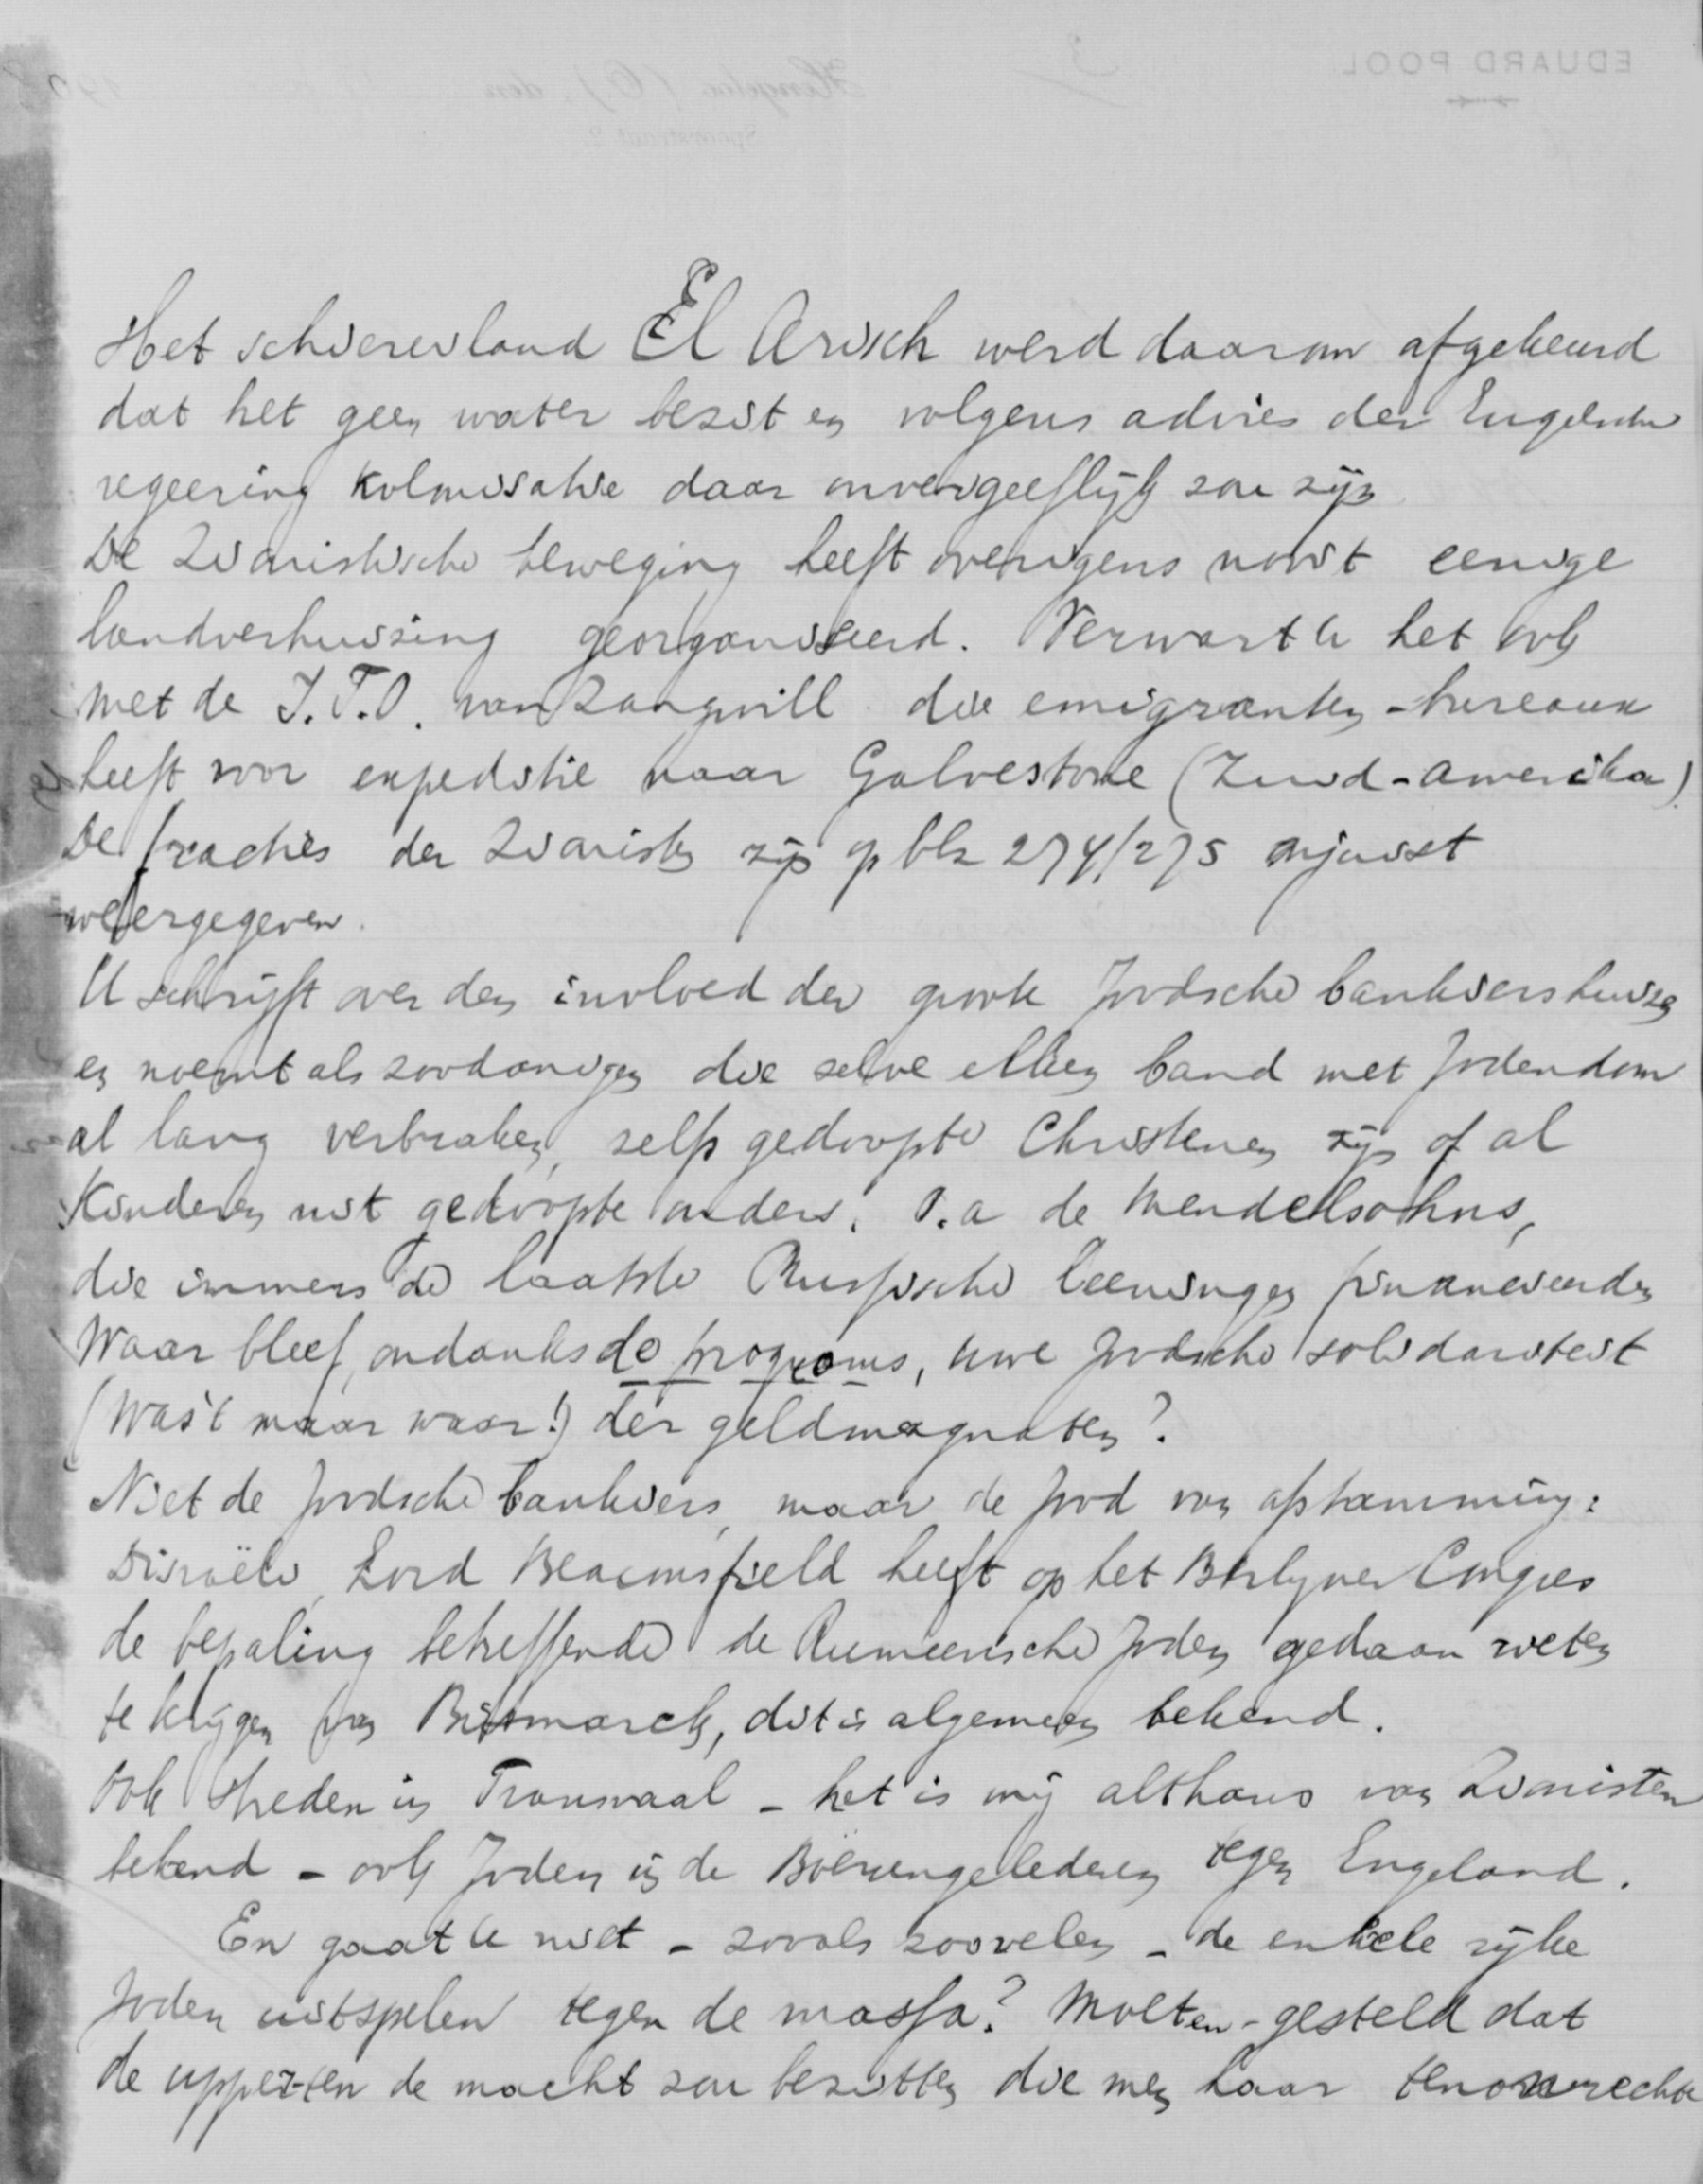 EDUARD POOL
Hengelo (O.), den 19
Het schiereiland El Arisch werd daarom afgekeurd
dat het geen water bezit en volgens advies der Engelsche
regeering kolonisatie daar onvergeeflijk zou zijn
De Zionistische beweging heeft overigens nooit eenige
landverhuizing georganiseerd. Verwart U het ook
met de I.T.O. van Zangwill die emigranten-bureaux
heeft voor expeditie naar Galvestone (Zuid-Amerika)
De fracties der Zionisten zijn op blz 274/275 onjuist
weergegeven.
U schrijft over den invloed der groote Joodsche bankiershuizen
en noemt als zoodanigen die zelve elken band met Jodendom
al lang verbraken, zelfs gedoopte Christenen zijn of al
Kinderen uit gedoopte ouders. O.a de Mendelsohns,
die immers de laatste Russische leeningen financieerden
Waar bleef, ondanks de progroms, uwe Joodsche solidariteit
(Was't maar waar!) der geldmagnaten?
Niet de Joodsche bankiers, maar de Jood van afstamming:
Disraëli, Lord Beaconsfield heeft op het Berlijner Congres
de bepaling betreffende de Rumeensche Joden gedaan weten
te krijgen van Bismarck, dit is algemeen bekend.
Ook streden in Transvaal - het is mij althans van Zionisten
bekend - ook Joden in de Boërengelederen tegen Engeland.
En gaat U niet - zooals zoovelen - de enkele rijke
Joden uitspelen tegen de massa? Moeten - gesteld dat
de upper-ten de macht zou bezitten die men haar tenonrechte